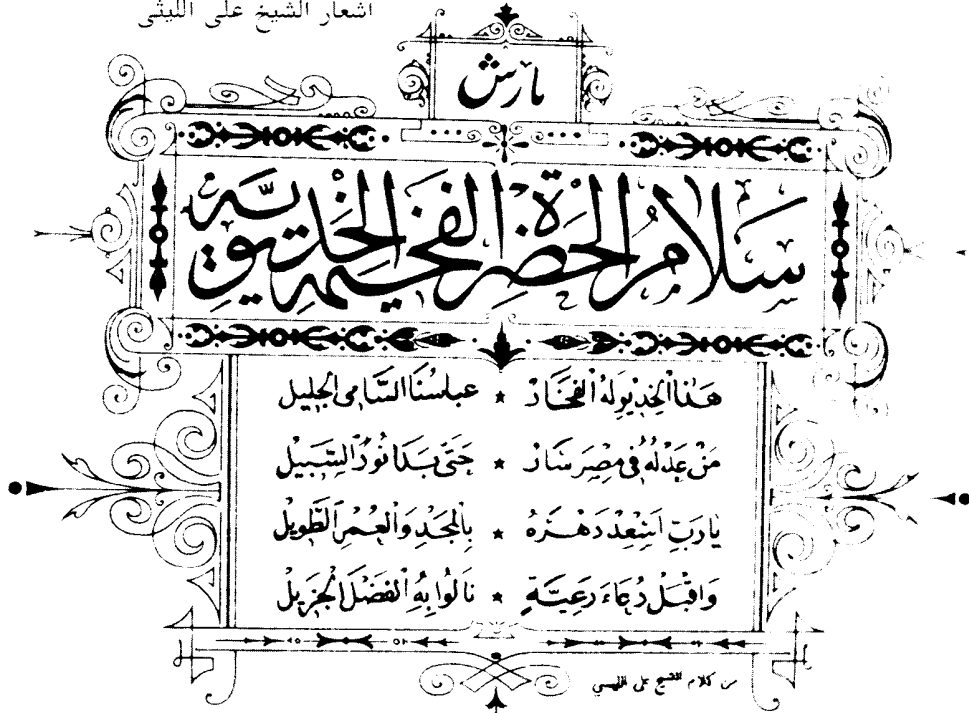 اشعار الشيخ على الليثى
مارش
سَلَامُ الحَضْرَةِ الفَخِيمَةِ الخِدِيوِيَّه
هَذَا الخِدِيو لَهُ الفَخَارْ * عباسُنَا السَّامِى الجَلِيل
مَنْ عَدْلُهُ فِى مِصْرَ سَارْ * حَتَّى بَدَا نُورُ السَّبِيلْ
يَا رَبِّ اَسْعِدْ دَهْرَهُ * بِالمَجْدِ وَالعُمْرِ الطَّوِيلْ
وَاقْبَلْ دُعَاءَ رَعِيَّةٍ * نَالُوا بِهِ الفَضْلَ الجَزِيلْ
من كلام الشيخ على الليسى